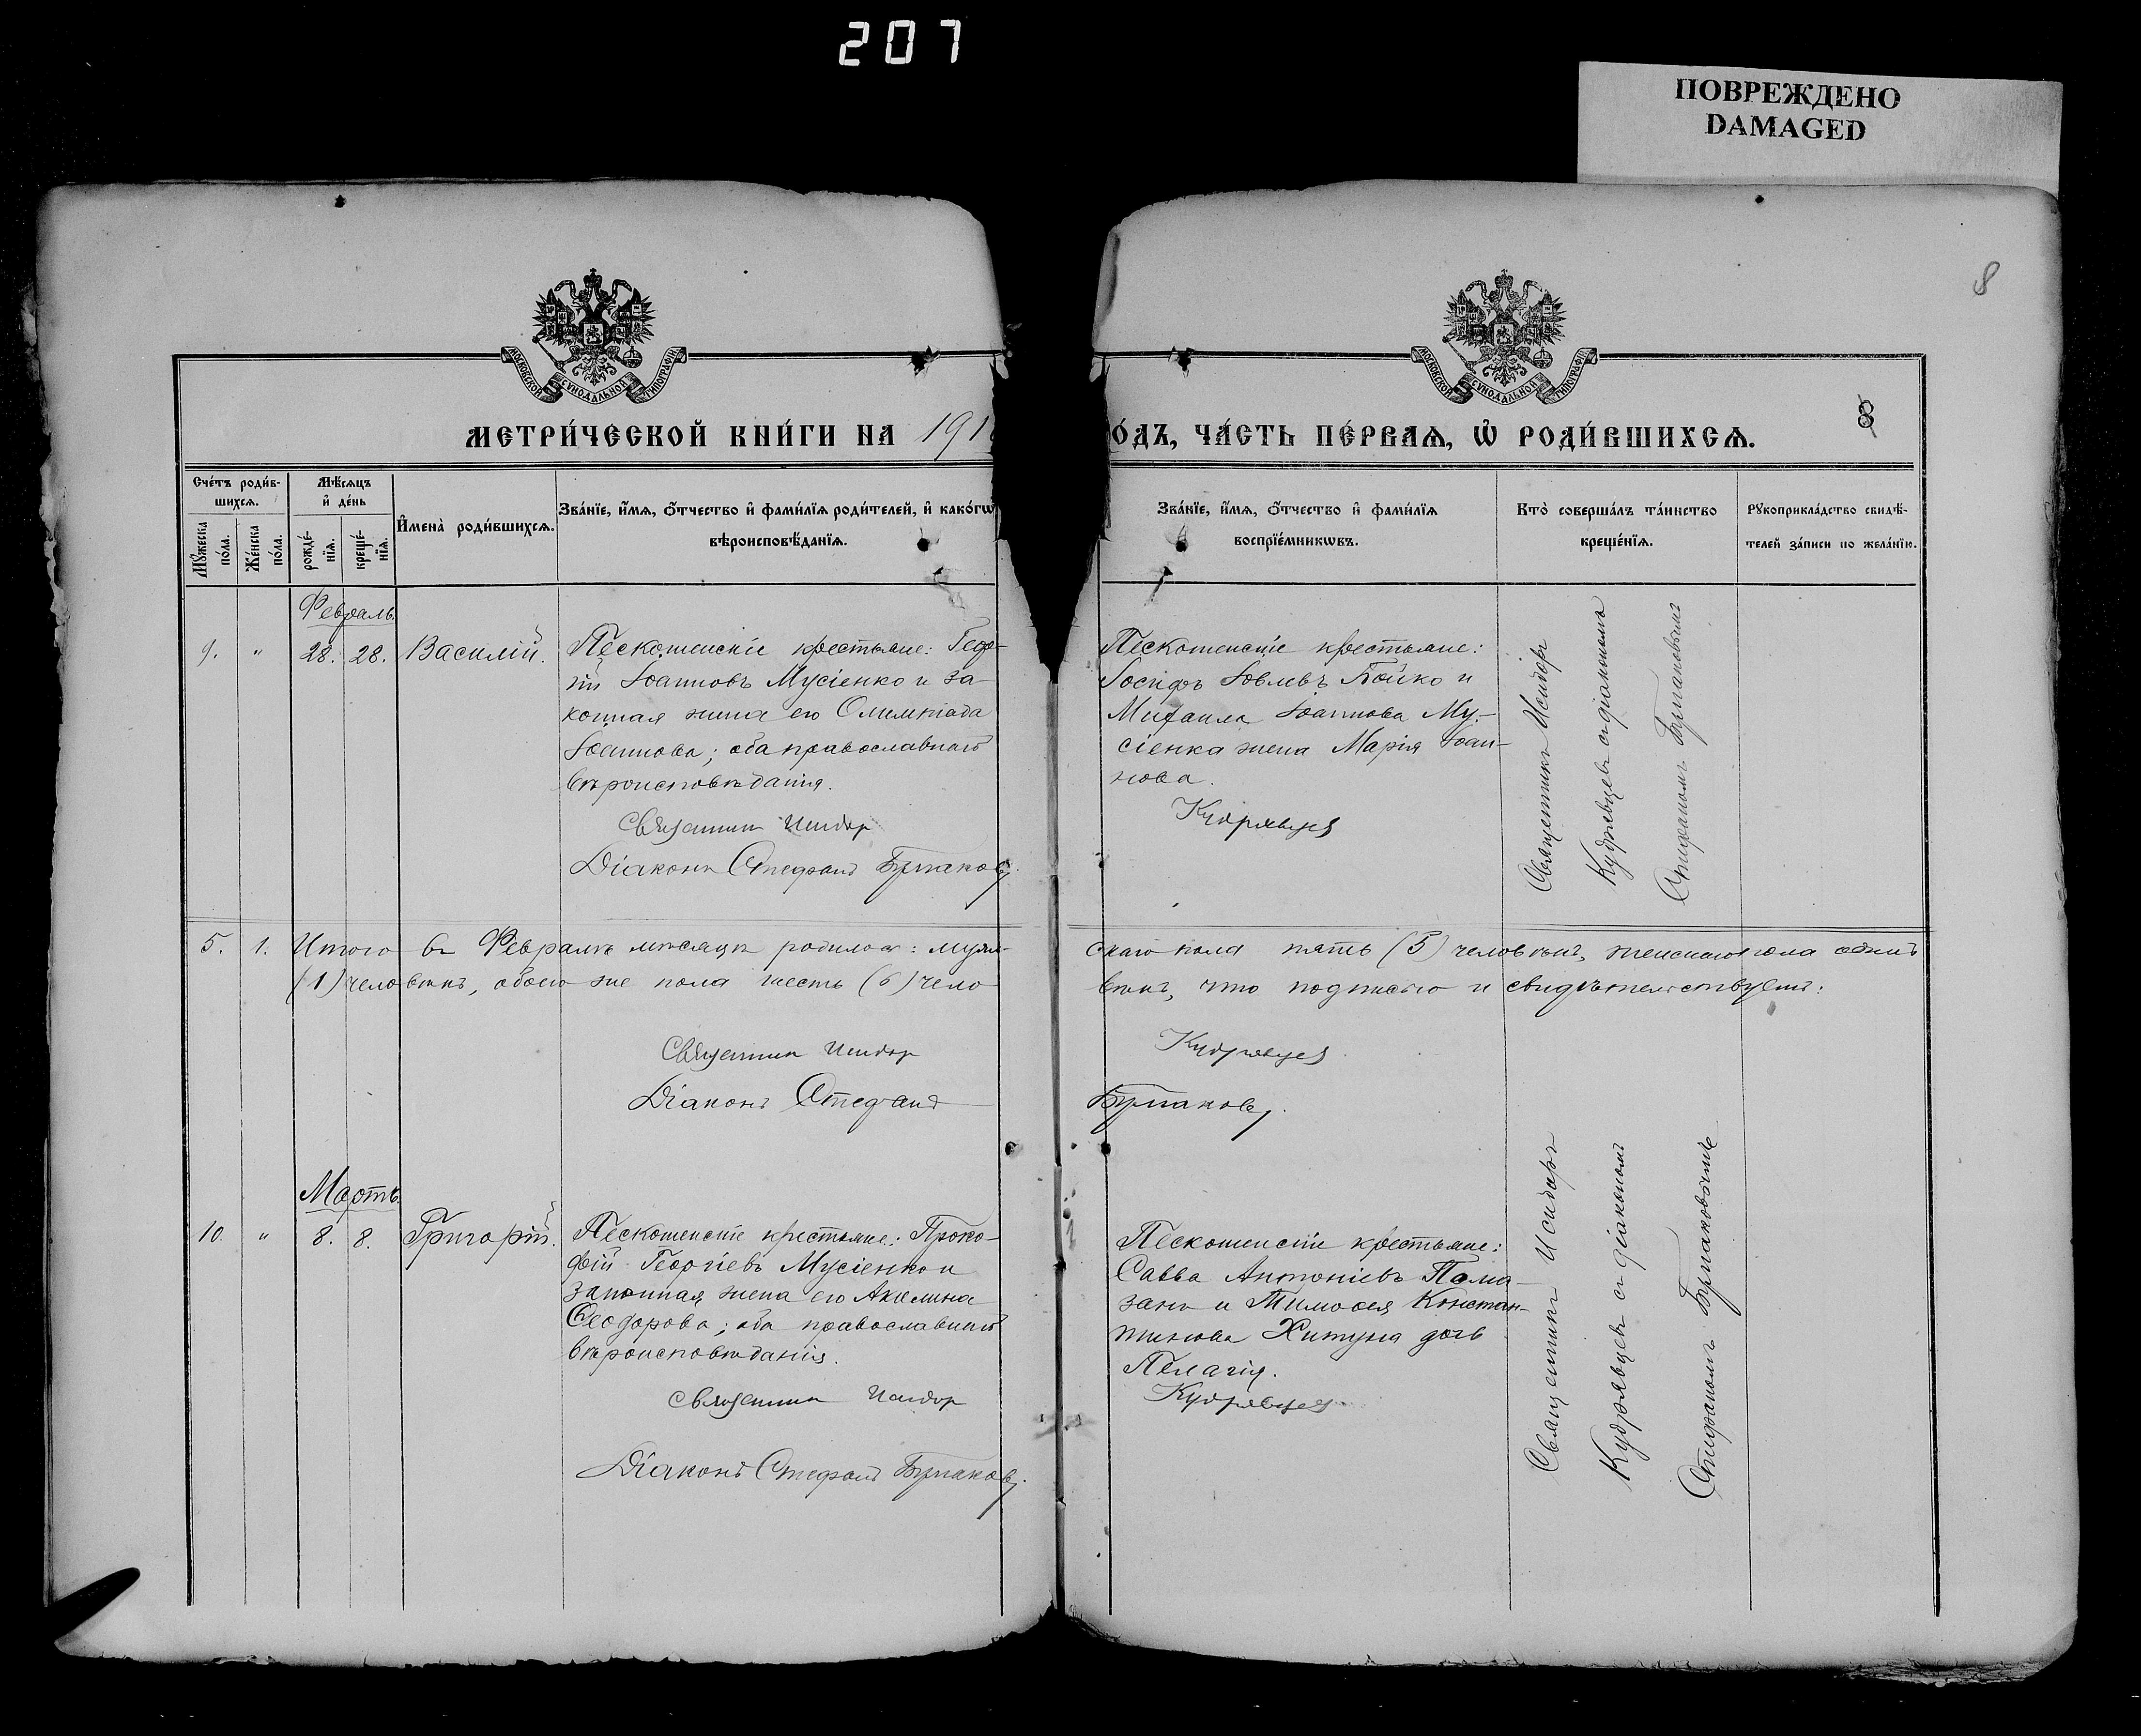 207
ПОВРЕЖДЕНО
DAMAGED
8
МОСКОВСКОЙ СѴНОДАЛЬНОЙ ТИПОГРАФІИ
МОСКОВСКОЙ СѴНОДАЛЬНОЙ ТИПОГРАФІИ
МЕТРИ́ЧЕСКОЙ КНИ́ГИ НА 191
О́ДЪ, ЧА́СТЬ ПЕ́РВАѦ, Ѡ҆ РОДИ́ВШИХСѦ.
8
Сче́тъ роди́в-
шихсѧ.
Мѣ́сѧцъ
и҆ де́нь
Мꙋ́жеска
по́ла.
Же́нска
по́ла.
рожде́-
нїѧ.
креще́-
нїѧ.
И҆мена̀ роди́вшихсѧ.
Зва́нїе, и҆́мѧ, ѻ҆́тчество и҆ фами́лїѧ роди́телей, и҆ како́гѡ
вѣроисповѣ́данїѧ.
Зва́нїе, и҆́мѧ, ѻ҆́тчество и҆ фами́лїѧ
воспрїе́мникѡвъ.
Кто̀ соверша́лъ та́инство
креще́нїѧ.
Рꙋкоприкла́дство свидѣ́-
телей за́писи по жела́нїю.
Февраль.
9. " 28. 28. Василій.
Пескошенскіе крестьяне:
Іоанновъ Мусіенко и за-
конная жена его Олимпіада
Іоаннова; оба православнаго
вѣроисповѣданія.
Священникъ Исидор
Діаконъ Стефанъ Бурлаковъ.
Пескошенскіе крестьяне:
Іосифъ Іовлевъ Бойко и
Михаила Іоаннова Му-
сіенка жена Марія Іоан-
нова.
Кудрявцев
Священникъ Исидоръ
Кудрявцевъ съ діакономъ
Стефаномъ Бурлаковымъ
5. 1. Итого въ Февралѣ мѣсяцѣ родилось: муж-
скаго пола пять (5) человѣкъ, женскаго пола одинъ
(1) человѣкъ, обоего же пола шесть (6) чело
вѣкъ, что подписью и свидѣтельствуемъ:
Священник Исидор
Кудрявцев
Діаконъ Стефанъ
Бурлаковъ.
Мартъ.
10. " 8. 8. Григорій.
Пескошенскіе крестьяне: Проко-
фій Георгіевъ Мусіенко и
законная жена его Акилина
Ѳеодорова; оба православнаго
вѣроисповѣданія.
Священник Исидор
Діаконъ Стефанъ Бурлаковъ.
Пескошенскіе крестьяне:
Савва Антоніевъ Пома-
занъ и Тимоѳея Констан-
тинова Хитуна дочь
Пелагія.
Кудрявцев
Священникъ Исидоръ
Кудрявцевъ съ діакономъ
Стефаномъ Бурлаковымъ